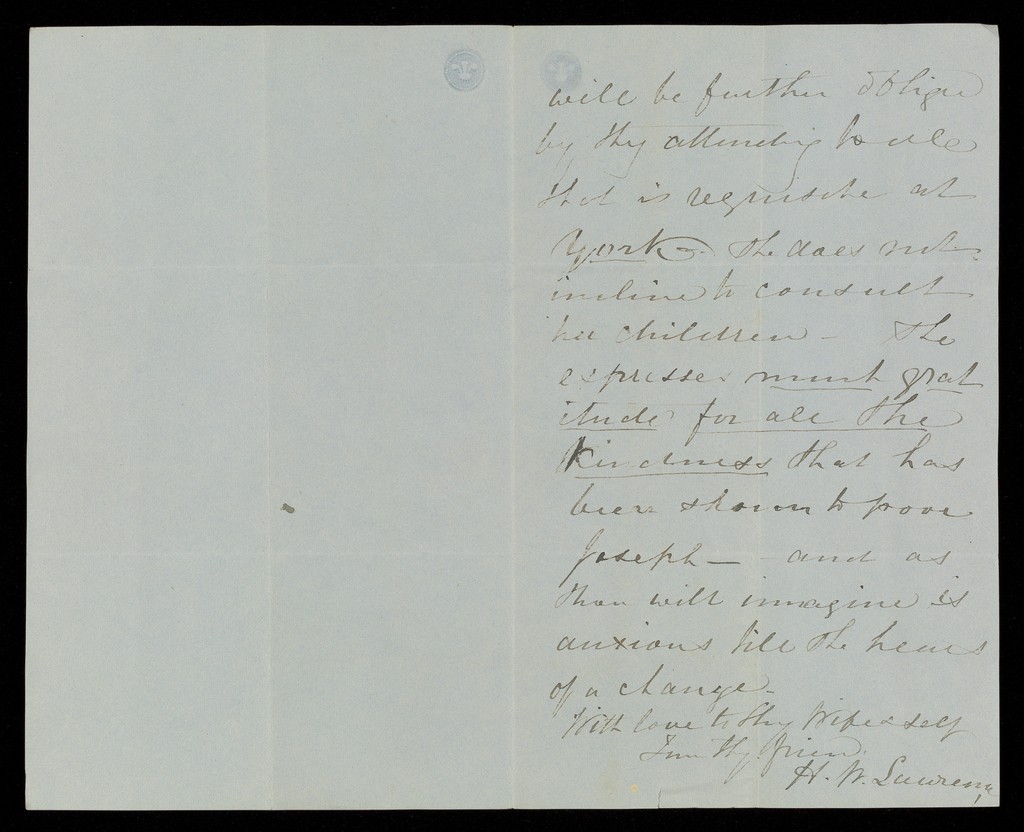 will be further oblige
by thy attending to all
that is requisite at
York - She does not
incline to consult
her children - She
expresses much grat
itude for all the
kindness that has
been shown to poor
Joseph — and as
thou wilt imagine is
anxious till she hears
of a change -
With love to thy Wife & self
I am thy friend
H. W. Lawrence